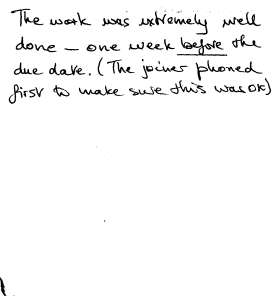 The work was extremely well
done – one week before the
due date. (The joiner phoned
first to make sure this was OK)